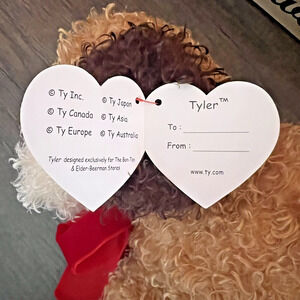 © Ty Inc.
© Ty Canada
© Ty Europe
© Ty Japan
© Ty Asia
© Ty Australia
Tyler designed exclusively for The Bon-Ton
& Elder-Beerman Stores
Tyler™
To :
From :
www.ty.com